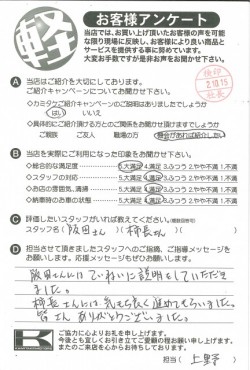 軽
お客様アンケート
当店では、お買い上げ頂いたお客様の声を可能
な限り現場に反映し、お客様により良い商品と
サービスを提供する事に努めています。
大変お手数ですが是非お声をお聞かせ下さい。
検印
2.10.15
A 当店はご紹介を大切にしております。
ご紹介キャンペーンについてお聞かせ下さい。
◇カミタケご紹介キャンペーンのご説明はありましたでしょうか
はい いいえ
◇具体的にご紹介頂ける方とのご関係をお聞かせ頂けますでしょうか
ご親族 ご友人 職場の方 機会があれば紹介したい
B 当店を実際にご利用になった印象をお聞かせ下さい。
◇総合的な満足度 5.大満足 4.満足 3.ふつう 2.やや不満 1.不満
◇スタッフの対応 5.大満足 4.満足 3.ふつう 2.やや不満 1.不満
◇お店の雰囲気、清掃 5.大満足 4.満足 3.ふつう 2.やや不満 1.不満
◇納車時のお車の状態 5.大満足 4.満足 3.ふつう 2.やや不満 1.不満
C 評価したいスタッフがいれば教えてください。(複数回答可)
スタッフ名(阪田さん)(柿長さん)
D 担当させて頂きましたスタッフへのご指摘、ご指導メッセージを
お願いします。応援メッセージもぜひお願いします。
阪田さんにはていねいに説明をしていただき
ました。
柿長さんには気もち良く進めてもらいました。
皆さんありがとうございました。
K
ご協力に心よりお礼を申し上げます。
今後とも宜しくお引き立てご愛顧の程お願い申し上げます。
またのご来店を心からお待ちしております。
担当(上野)